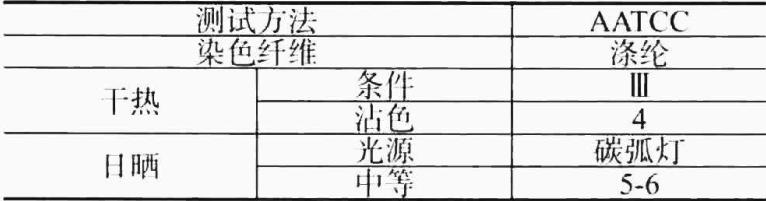 测试方法 AATCC
染色纤维 涤纶
干热 条件 Ⅲ
沾色 4
日晒 光源 碳弧灯
中等 5-6